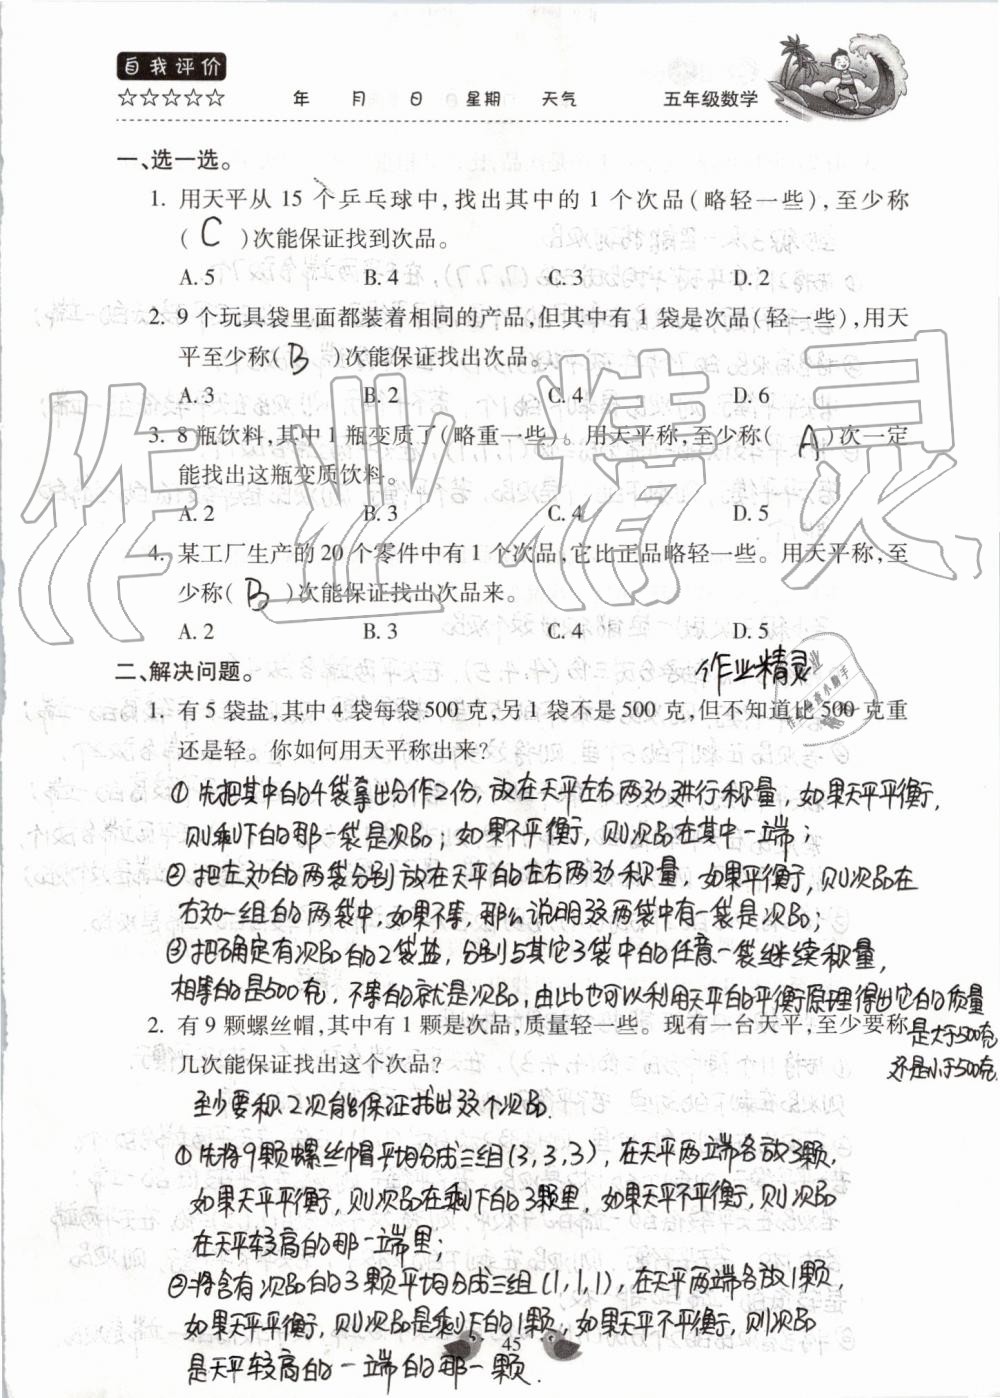 自我评价
☆☆☆☆☆ 年 月 日 星期 天气 五年级数学
一、选一选。
1. 用天平从 15 个乒乓球中,找出其中的 1 个次品(略轻一些),至少称
( C )次能保证找到次品。
A. 5 B. 4 C. 3 D. 2
2. 9 个玩具袋里面都装着相同的产品,但其中有 1 袋是次品(轻一些),用天
平至少称( B )次能保证找出次品。
A. 3 B. 2 C. 4 D. 6
3. 8 瓶饮料,其中 1 瓶变质了(略重一些)。用天平称,至少称( A )次一定
能找出这瓶变质饮料。
A. 2 B. 3 C. 4 D. 5
4. 某工厂生产的 20 个零件中有 1 个次品,它比正品略轻一些。用天平称,至
少称( B )次能保证找出次品来。
A. 2 B. 3 C. 4 D. 5
二、解决问题。 作业精灵
1. 有 5 袋盐,其中 4 袋每袋 500 克,另 1 袋不是 500 克,但不知道比 500 克重
还是轻。你如何用天平称出来?
①先把其中的4袋拿出分作2份,放在天平左右两边进行称量,如果天平平衡,
则剩下的那一袋是次品;如果不平衡,则次品在其中一端;
②把左边的两袋分别放在天平的左右两边称量,如果平衡,则次品在
右边一组的两袋中,如果不等,那么说明这两袋中有一袋是次品;
③把确定有次品的2袋盐,分别与其它3袋中的任意一袋继续称量,
相等的是500克,不等的就是次品,由此也可以利用天平的平衡原理得出它的质量
是大于500克
还是小于500克
2. 有 9 颗螺丝帽,其中有 1 颗是次品,质量轻一些。现有一台天平,至少要称
几次能保证找出这个次品?
至少要称2次能保证找出这个次品.
①先将9颗螺丝帽平均分成三组(3,3,3),在天平两端各放3颗,
如果天平平衡,则次品在剩下的3颗里,如果天平不平衡,则次品
在天平较高的那一端里;
②将含有次品的3颗平均分成三组(1,1,1),在天平两端各放1颗,
如果天平平衡,则次品是剩下的1颗,如果天平不平衡,则次品
是天平较高的一端的那一颗.
45
作业精灵